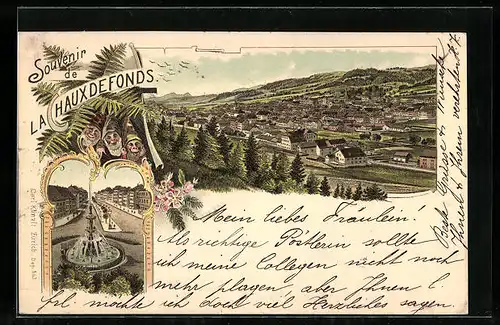 Souvenir
de
LA CHAUX DE FONDS
Carl Künzli, Zürich. Dep. 847
Mein liebes Fräulein!
Als richtige Pöstlerin sollte
ich meine Collegen nicht noch
mehr plagen aber Ihnen l.
Frl. möchte ich doch viel Herzliches sagen.
Beste Grüsse & Wünsche
Ihnen &